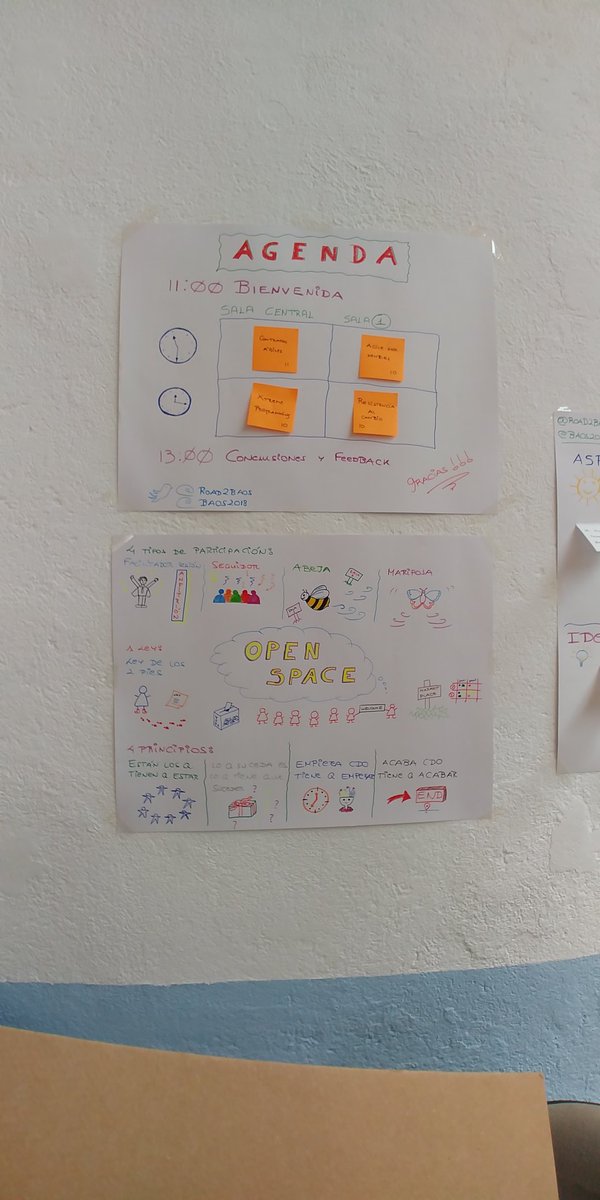 AGENDA
11:00 BIENVENIDA
SALA CENTRAL
SALA 1
11
10
XTREME
PROGRAMMING
10
RESISTENCIA
AL
CAMBIO
10
13:00 CONCLUSIONES Y FEEDBACK
GRACIAS!!!
ROAD2BAOS
BAOS2018
4 TIPOS DE PARTICIPACIÓN
FACILITADOR
SEGUIDOR
ABEJA
MARIPOSA
OPEN
SPACE
1 LEY
LEY DE LOS
2 PIES
WELCOME
MARKET
PLACE
4 PRINCIPIOS
ESTÁN LOS Q
TIENEN Q ESTAR
LO Q SUCEDA ES
LO Q TIENE QUE
SUCEDER
?
?
?
?
EMPIEZA CDO
TIENE Q EMPEZAR
ACABA CDO
TIENE Q ACABAR
END
@ROAD2BA
@BAOS20
ASP
IDE